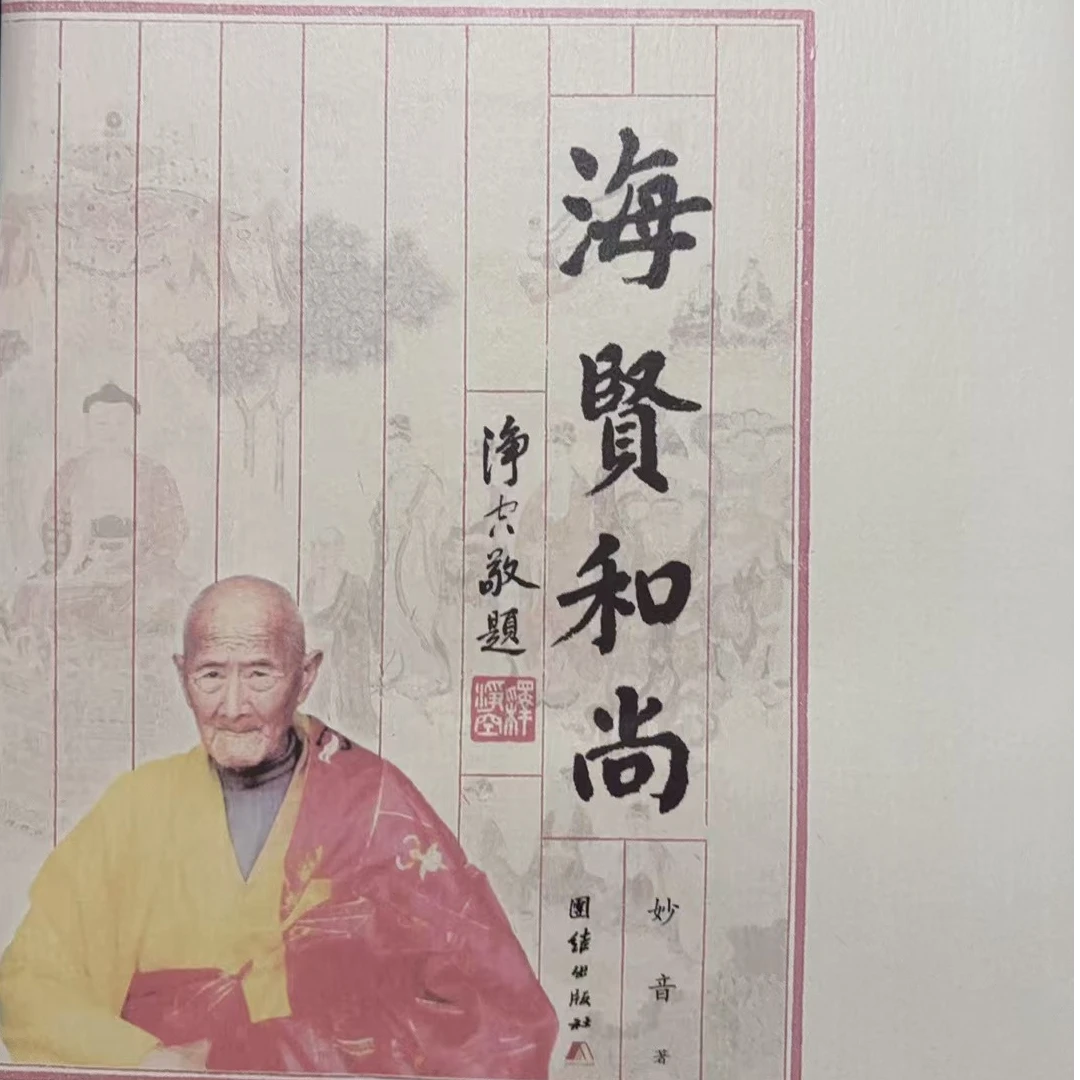 海賢和尚
妙音 著
淨空敬題
釋淨空印
團結出版社